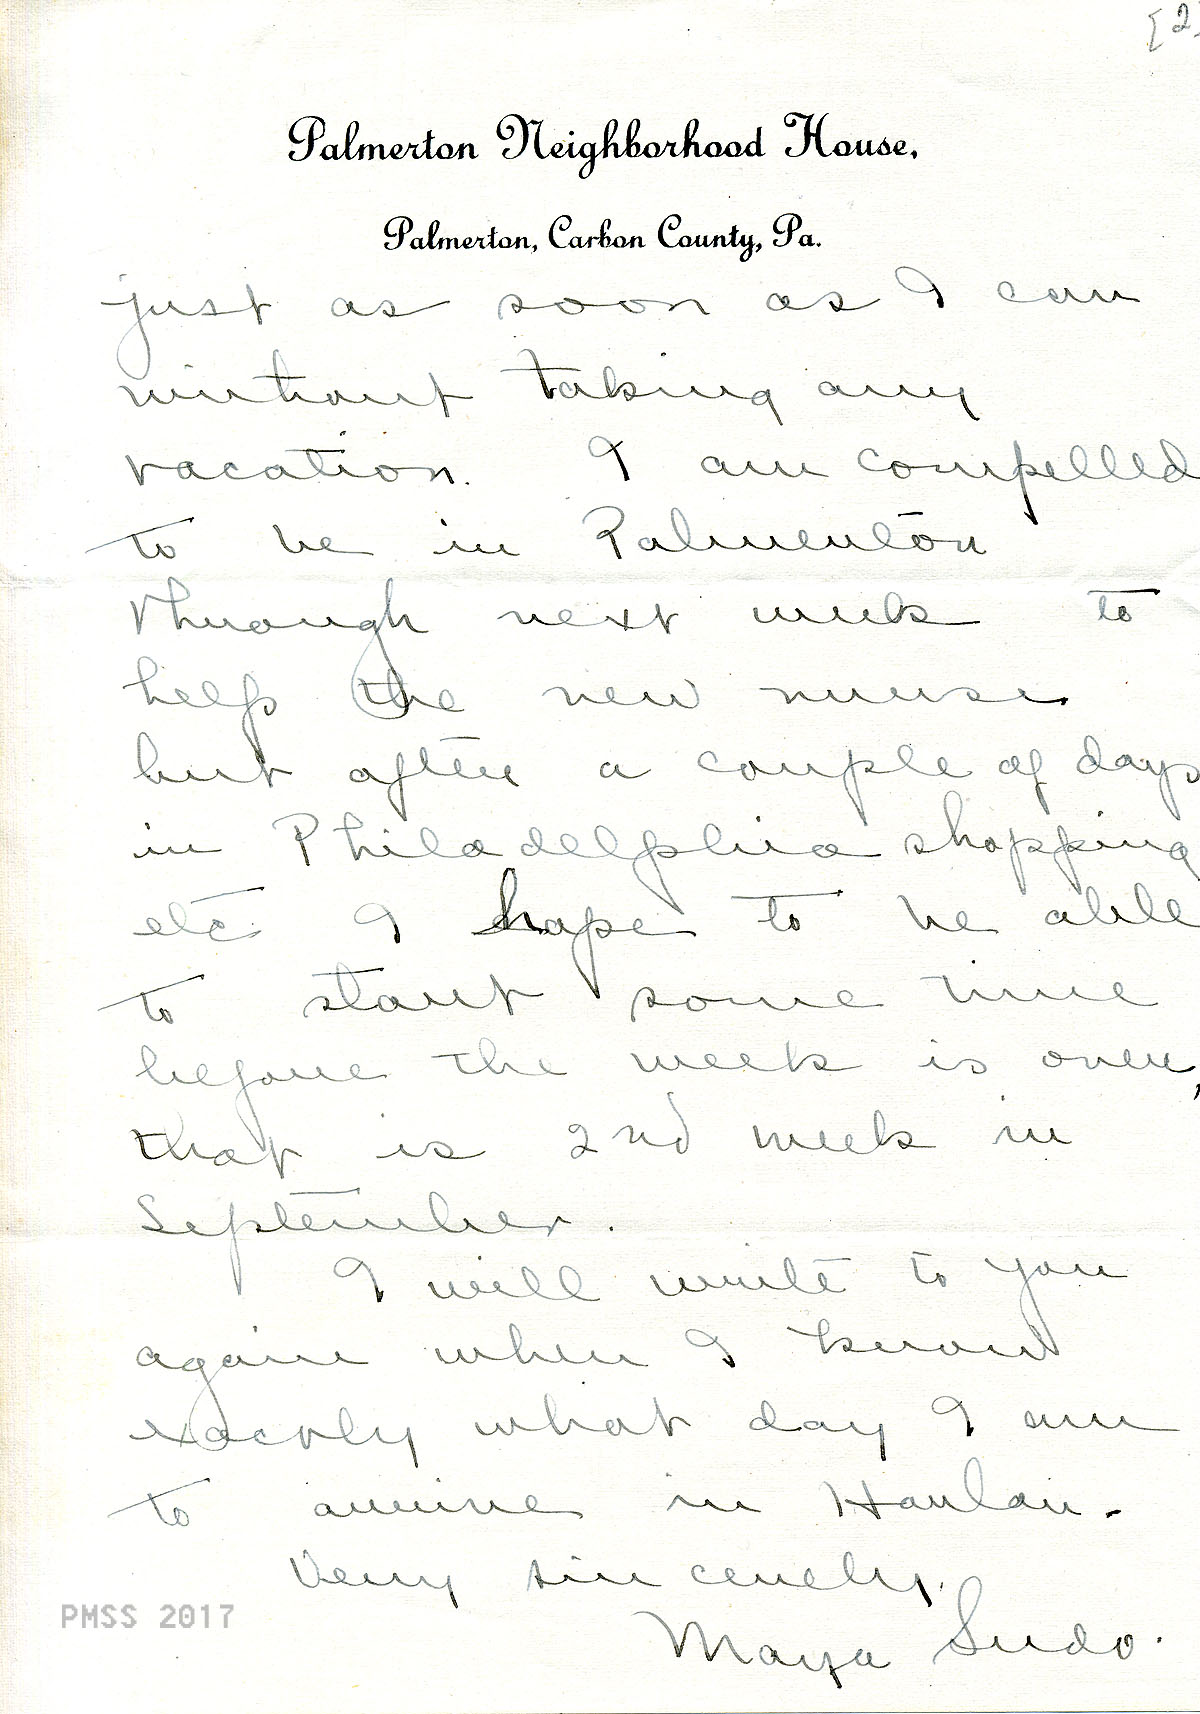 [2]
Palmerton Neighborhood House,
Palmerton, Carbon County, Pa.
just as soon as I can
without taking any
vacation. I am compelled
to be in Palmerton
through next week to
help the new nurse
but after a couple of days
in Philadelphia shopping
etc I hope to be able
to start some time
before the week is over,
that is 2nd week in
September.
I will write to you
again when I know
exactly what day I am
to arrive in Harlan.
Very sincerely.
Maya Sudo.
PMSS 2017